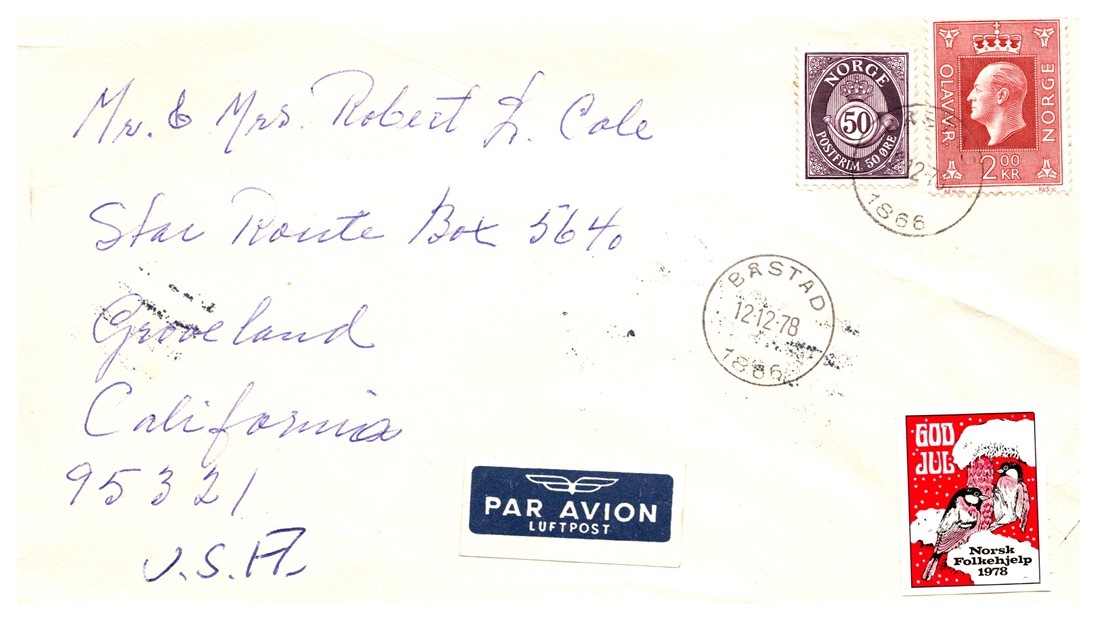 Mr. & Mrs. Robert L. Cole
Star Route Box 5640
Groveland
California
95321
U.S.A.
NORGE
50
POSTFRIM. 50 ØRE
OLAV V R.
NORGE
2.00
KR
12-7
1866
BÅSTAD
12-12-78
1866
PAR AVION
LUFTPOST
GOD
JUL
Norsk
Folkehjelp
1978